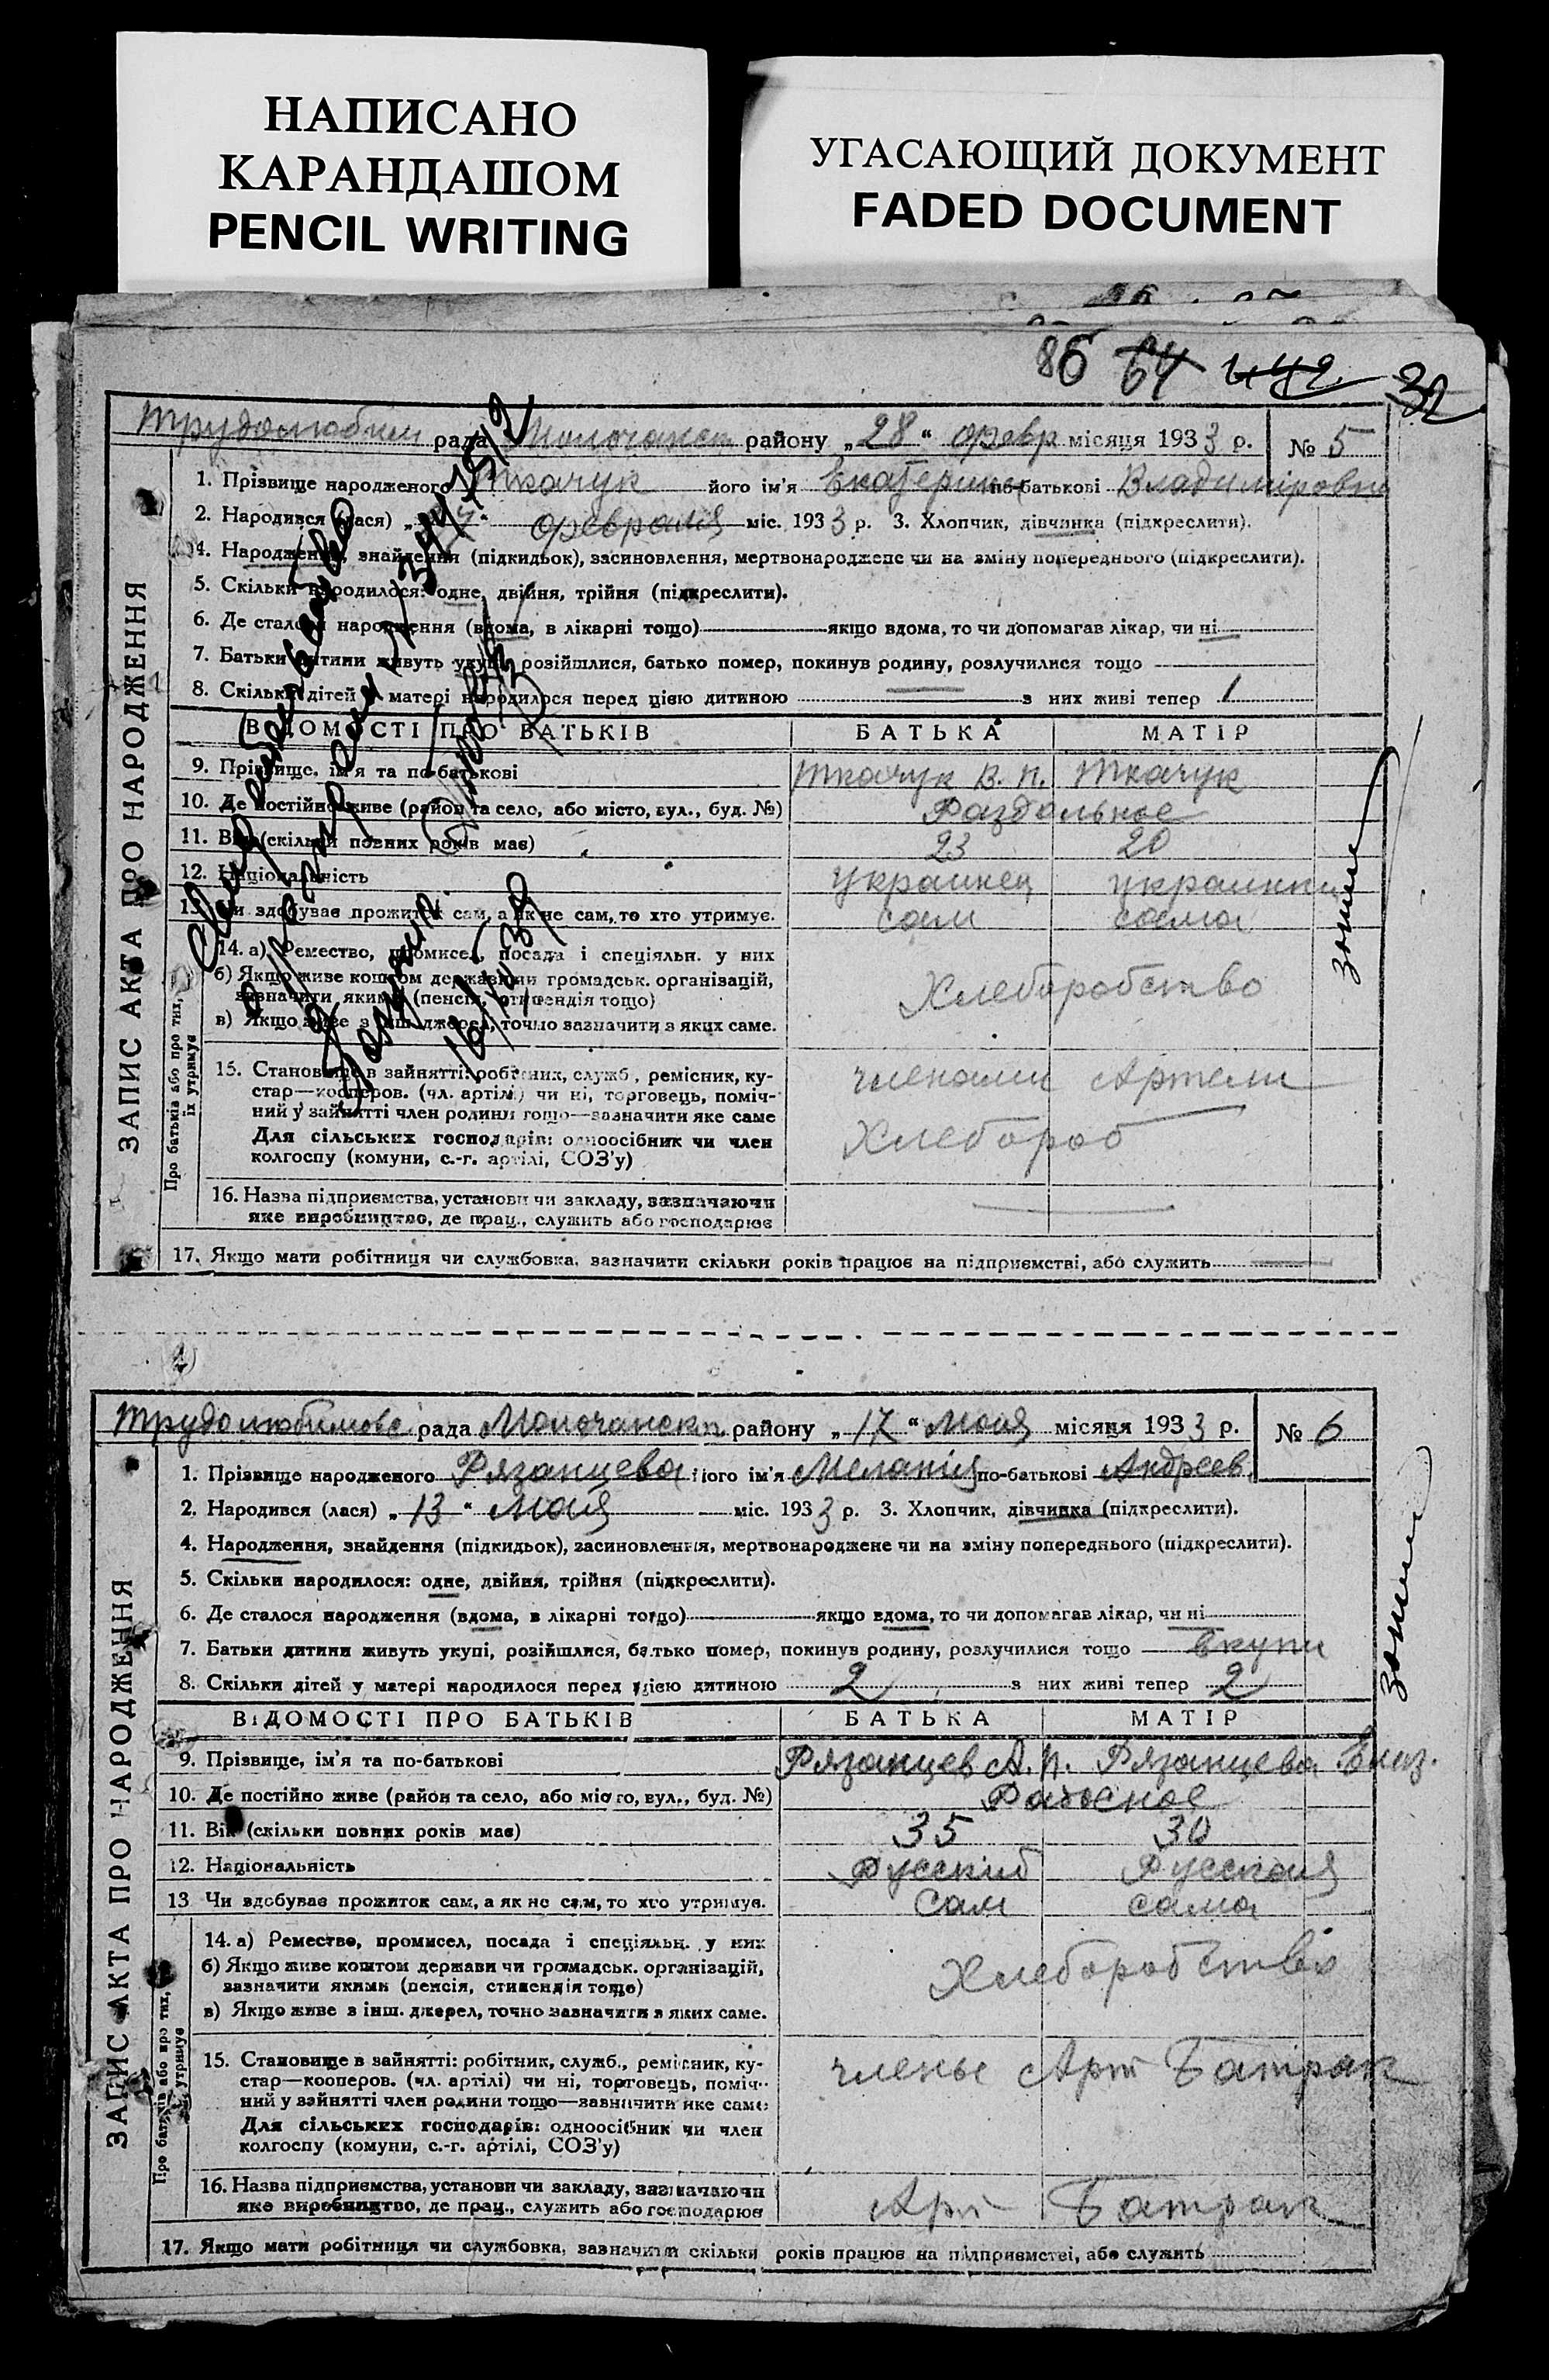 НАПИСАНО
КАРАНДАШОМ
PENCIL WRITING
УГАСАЮЩИЙ ДОКУМЕНТ
FADED DOCUMENT
86 64 32
ЗАПИС АКТА ПРО НАРОДЖЕННЯ
рада Молочанск району „28“ февр місяця 1933 р. № 5
1. Прізвище народженого Ткачук його ім'я Екатерина по-батькові Владиміровна
2. Народився (лася) „7“ февраля міс. 1933 р. 3. Хлопчик, дівчинка (підкреслити).
4. Народження, знайдення (підкидьок), засиновлення, мертвонароджене чи на зміну попереднього (підкреслити).
5. Скільки народилося: одне, двійня, трійня (підкреслити).
6. Де сталося народження (вдома, в лікарні тощо) якщо вдома, то чи допомагав лікар, чи ні
7. Батьки дитини живуть укупі, розійшлися, батько помер, покинув родину, розлучилися тощо
8. Скільки дітей у матері народилося перед цією дитиною з них живі тепер 1
ВІДОМОСТІ ПРО БАТЬКІВ БАТЬКА МАТІР
9. Прізвище, ім'я та по-батькові Ткачук В. П. Ткачук
10. Де постійно живе (район та село, або місто, вул., буд. №) Раздольное
11. Вік (скільки повних років має) 23 20
12. Національність Украинец украинка
13. Чи здобуває прожиток сам, а як не сам, то хто утримує. сам сама
Про батьків або про тих, що їх утримує
14. а) Ремество, промисел, посада і спеціяльн. у них
б) Якщо живе коштом держави чи громадськ. організацій,
зазначити якими (пенсія, стипендія тощо)
Хлеборобство
в) Якщо живе з інш. джерел, точно зазначити з яких саме.
15. Становище в зайнятті: робітник, служб., ремісник, ку-
стар—кооперов. (чл. артілі) чи ні, торговець, поміч-
ний у зайнятті член родини тощо—зазначити яке саме
членами Артели
Для сільських господарів: одноосібник чи член
колгоспу (комуни, с.-г. артілі, СОЗ'у)
Хлебороб
16. Назва підприємства, установи чи закладу, зазначаючи
яке виробництво, де прац., служить або господарює
17. Якщо мати робітниця чи службовка, зазначити скільки років працює на підприємстві, або служить
ЗАПИС АКТА ПРО НАРОДЖЕННЯ
Трудолюбимовс рада Молочанск району „17“ Мая місяця 1933 р. № 6
1. Прізвище народженого Рязанцева його ім'я Мелания по-батькові Андреев.
2. Народився (лася) „13“ Мая міс. 1933 р. 3. Хлопчик, дівчинка (підкреслити).
4. Народження, знайдення (підкидьок), засиновлення, мертвонароджене чи на зміну попереднього (підкреслити).
5. Скільки народилося: одне, двійня, трійня (підкреслити).
6. Де сталося народження (вдома, в лікарні тощо) якщо вдома, то чи допомагав лікар, чи ні
7. Батьки дитини живуть укупі, розійшлися, батько помер, покинув родину, розлучилися тощо вкупи
8. Скільки дітей у матері народилося перед цією дитиною 2 з них живі тепер 2
ВІДОМОСТІ ПРО БАТЬКІВ БАТЬКА МАТІР
9. Прізвище, ім'я та по-батькові Рязанцев А. П. Рязанцева Елиз.
10. Де постійно живе (район та село, або місто, вул., буд. №)
11. Вік (скільки повних років має) 35 30
12. Національність Русский Русская
13 Чи здобуває прожиток сам, а як не сам, то хто утримує. Сам сама
Про батьків або про тих, що їх утримує
14. а) Ремество, промисел, посада і спеціяльн. у них
б) Якщо живе коштом держави чи громадськ. організацій,
зазначити якими (пенсія, стипендія тощо)
Хлеборобство
в) Якщо живе з інш. джерел, точно зазначити з яких саме.
15. Становище в зайнятті: робітник, служб., ремісник, ку-
стар—кооперов. (чл. артілі) чи ні, торговець, поміч-
ний у зайнятті член родини тощо—зазначити яке саме
члены Арт Батрак
Для сільських господарів: одноосібник чи член
колгоспу (комуни, с.-г. артілі, СОЗ'у)
16. Назва підприємства, установи чи закладу, зазначаючи
яке виробництво, де прац., служить або господарює
Арт Батрак
17. Якщо мати робітниця чи службовка, зазначити скільки років працює на підприємстві, або служить